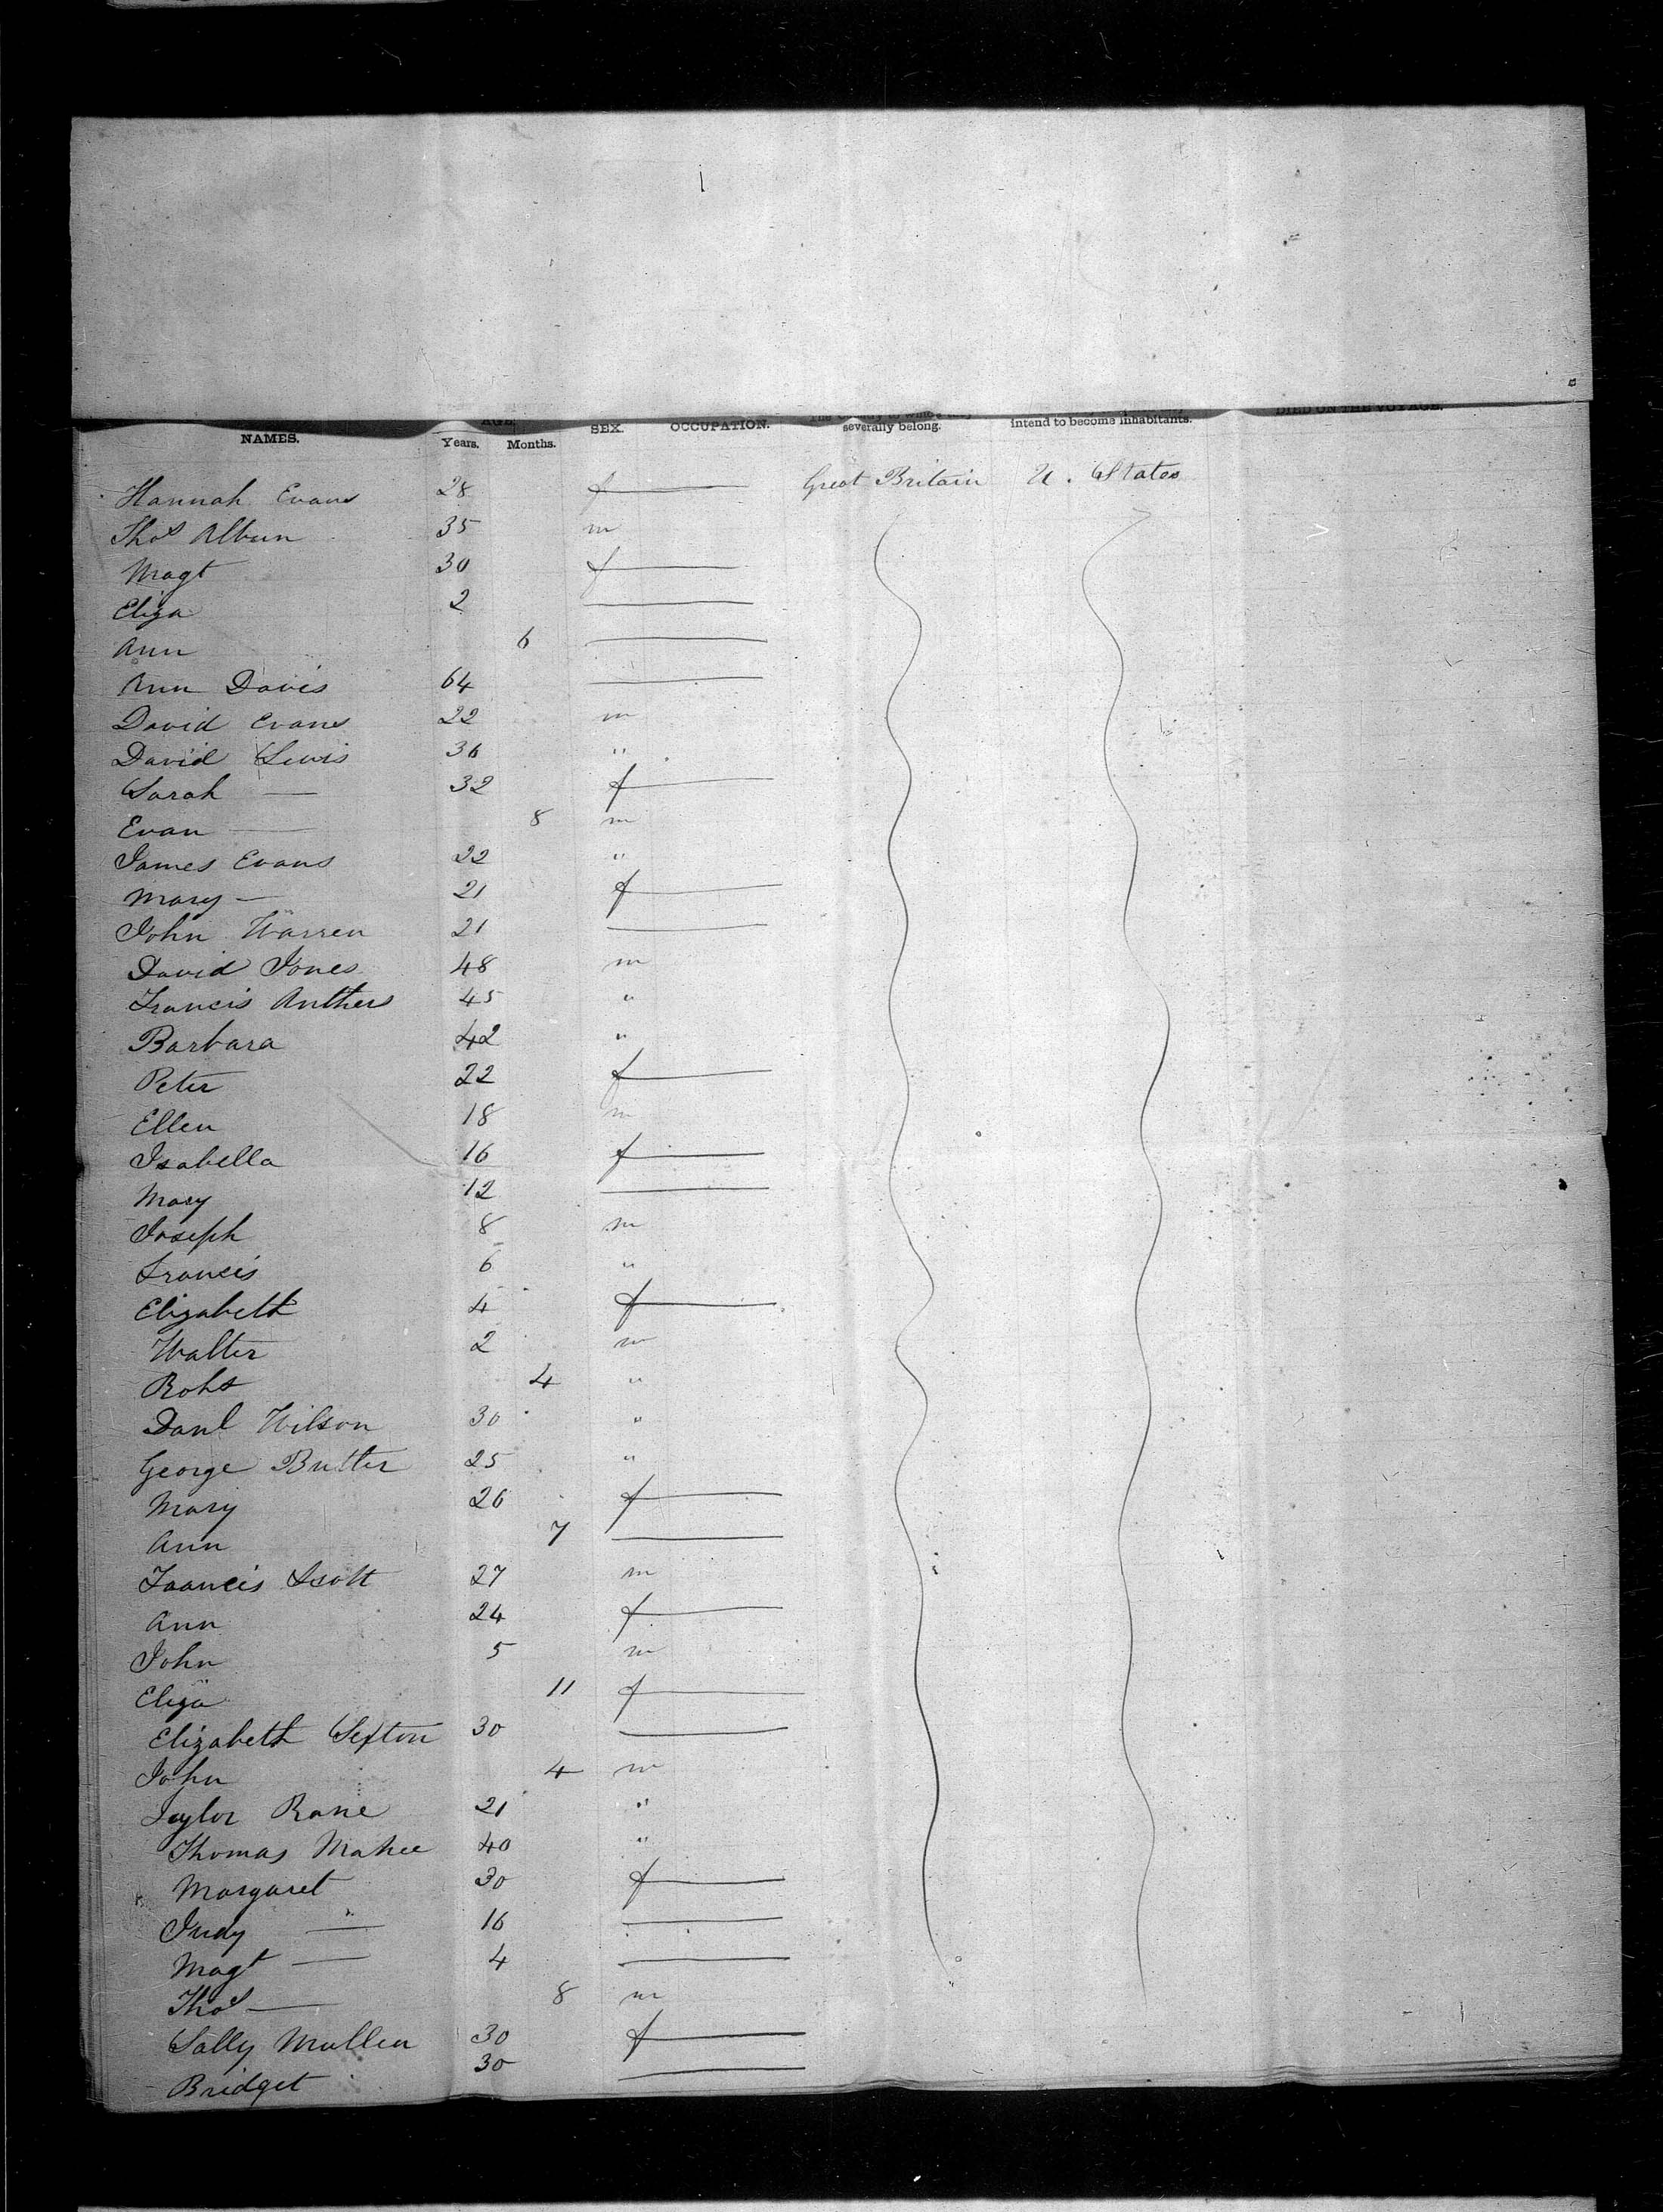 NAMES. AGE. Years. Months. SEX. OCCUPATION. The Country to which they severally belong. intend to become inhabitants. DIED ON THE VOYAGE.
Hannah Evans 28 f Great Britain U. States
Thos Albun 35 m
Magt 30 f
Eliza 2
Ann 6
Ann Davis 64
David Evans 22 m
David Lewis 36 "
Sarah — 32 f
Evan — 8 m
James Evans 22 "
Mary — 21 f
John Warren 21
David Jones 48 m
Francis Anthers 45 "
Barbara 42 "
Peter 22 f
Ellen 18 m
Isabella 16 f
Mary 12
Joseph 8 m
Francis 6 "
Elizabeth 4 f
Walter 2 m
Robt 4 "
Danl Wilson 30 "
George Butler 25 "
Mary 26 f
Ann 7
Francis Scott 27 m
Ann 24 f
John 5 m
Eliza 11 f
Elizabeth Sefton 30
John 4 m
Taylor Rane 21 "
Thomas Mahee 40 "
Margaret 30 f
Judy — " 16
Magt — 4
Thos — 8 m
Sally Mullen 30 f
Bridget 30